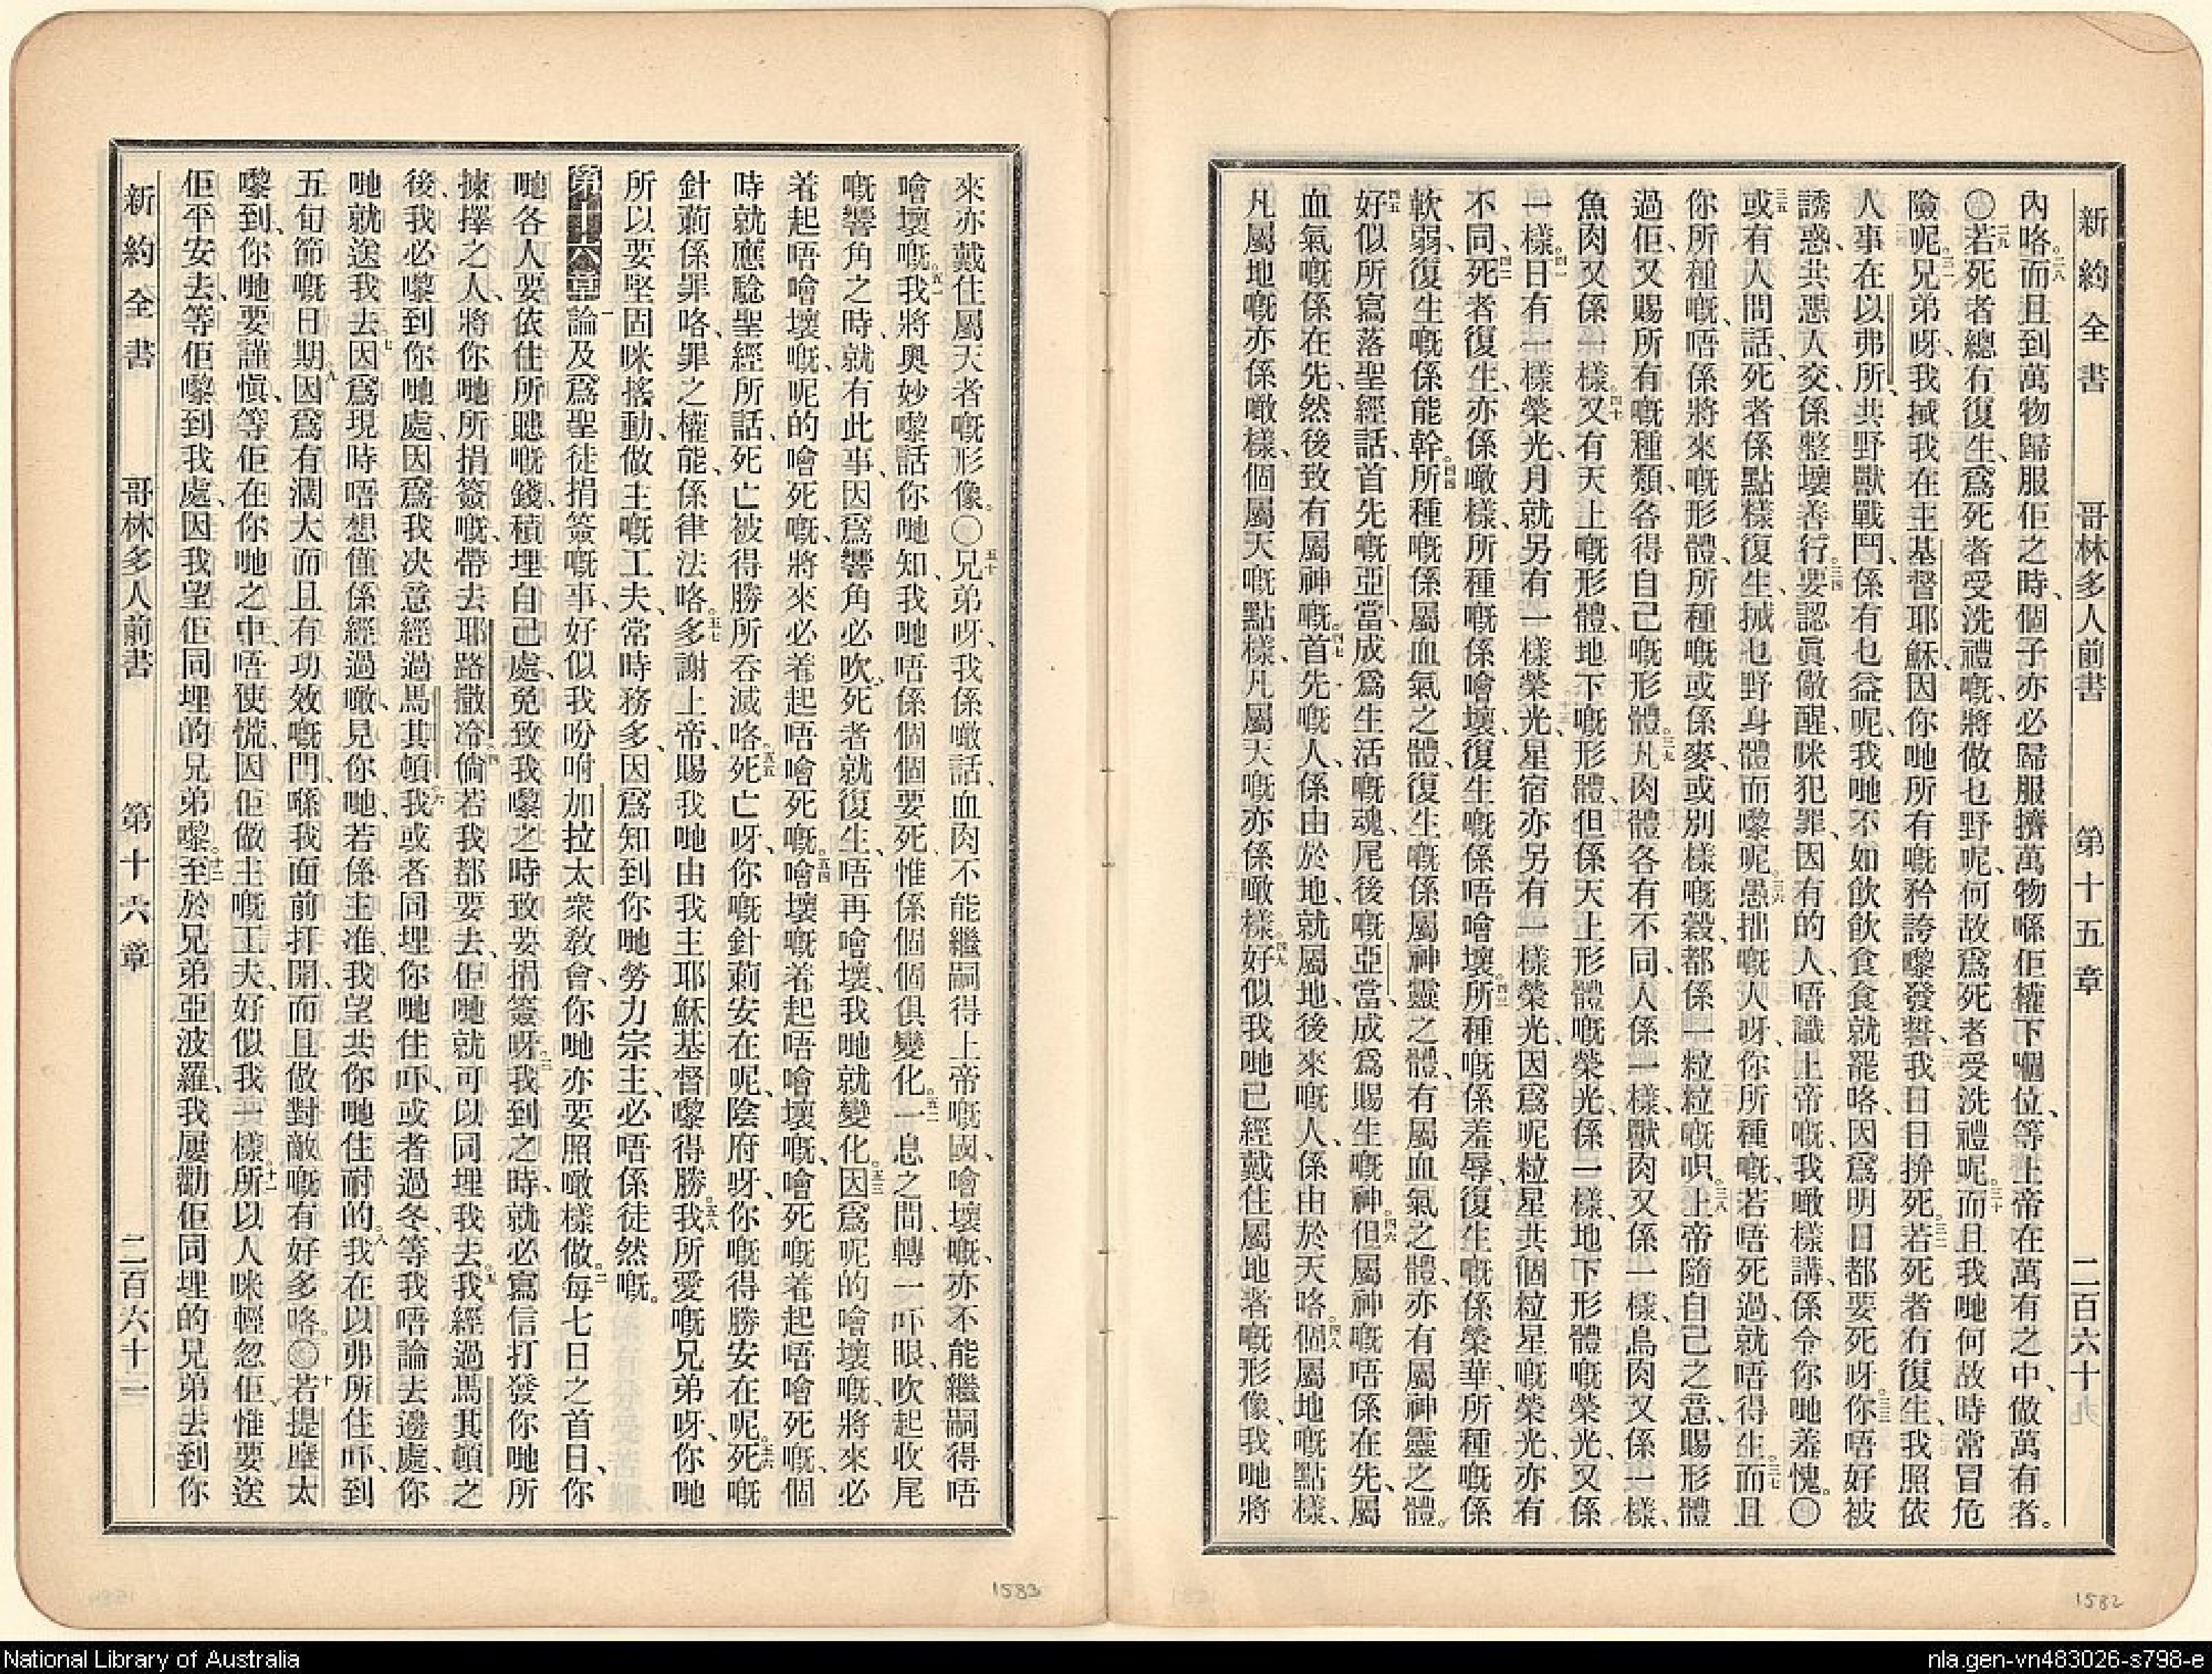 新約全書 哥林多人前書 第十五章 二百六十
內咯。二八而且到萬物歸服佢之時、個子亦必歸服擠萬物喺佢權下嗰位、等上帝在萬有之中、做萬有者。
〇二九若死者總冇復生、爲死者受洗禮嘅、將做乜野呢、何故爲死者受洗禮呢。三十而且我哋何故時常冒危
險呢。三一兄弟呀、我搣我在主基督耶穌、因你哋所有嘅矜誇嚟發誓、我日日拚死。三二若死者冇復生、我照依
人事在以弗所、共野獸戰鬥、係有乜益呢、我哋不如飲飲食食就罷咯、因爲明日都要死呀。三三你唔好被
誘惑、共惡人交、係整壞善行。三四要認眞儆醒、咪犯罪、因有的人、唔識上帝嘅、我噉樣講、係令你哋羞愧。〇
三五或有人問話、死者係點樣復生、搣乜野身體而嚟呢。三六愚拙嘅人呀、你所種嘅、若唔死過、就唔得生。三七而且
你所種嘅、唔係將來嘅形體、所種嘅或係麥、或別樣嘅穀、都係一粒粒嘅呮。三八上帝隨自己之意、賜形體
過佢、又賜所有嘅種類、各得自己嘅形體。三九凡肉體各有不同、人係一樣、獸肉又係一樣、鳥肉又係一樣、
魚肉又係一樣。四十又有天上嘅形體、地下嘅形體、但係天上形體嘅榮光、係一樣、地下形體嘅榮光、又係
一樣。四一日有一樣榮光、月就另有一樣榮光、星宿亦另有一樣榮光、因爲呢粒星共個粒星嘅榮光、亦有
不同。四二死者復生、亦係噉樣、所種嘅係噲壞、復生嘅係唔噲壞。四三所種嘅係羞辱、復生嘅係榮華、所種嘅係
軟弱、復生嘅係能幹。四四所種嘅係屬血氣之體、復生嘅係屬神靈之體、有屬血氣之體、亦有屬神靈之體。
四五好似所寫落聖經話、首先嘅亞當、成爲生活嘅魂、尾後嘅亞當、成爲賜生嘅神。四六但屬神嘅唔係在先、屬
血氣嘅係在先、然後致有屬神嘅。四七首先嘅人、係由於地、就屬地、後來嘅人、係由於天咯。四八個屬地嘅點樣、
凡屬地嘅亦係噉樣、個屬天嘅點樣、凡屬天嘅亦係噉樣。四九好似我哋已經戴住屬地者嘅形像、我哋將
1582
來亦戴住屬天者嘅形像。〇五十兄弟呀、我係噉話、血肉不能繼嗣得上帝嘅國、噲壞嘅、亦不能繼嗣得唔
噲壞嘅。五一我將奥妙嚟話你哋知、我哋唔係個個要死、惟係個個俱變化。五二一息之間、轉一吓眼、吹起收尾
嘅響角之時、就有此事、因爲響角必吹、死者就復生、唔再噲壞、我哋就變化。五三因爲呢的噲壞嘅、將來必
着起唔噲壞嘅、呢的噲死嘅、將來必着起唔噲死嘅。五四噲壞嘅着起唔噲壞嘅、噲死嘅着起唔噲死嘅、個
時就應騐聖經所話、死亡被得勝所吞滅咯。五五死亡呀、你嘅針莿安在呢、陰府呀、你嘅得勝安在呢。五六死嘅
針莿係罪咯、罪之權能、係律法咯。五七多謝上帝、賜我哋由我主耶穌基督嚟得勝。五八我所愛嘅兄弟呀、你哋
所以要堅固咪搖動、做主嘅工夫、常時務多、因爲知到你哋勞力宗主、必唔係徒然嘅。
第十六章一論及爲聖徒捐簽嘅事、好似我吩咐加拉太衆敎會、你哋亦要照噉樣做。二每七日之首日、你
哋各人要依住所聽嘅錢、積埋自己處、免致我嚟之時、致要捐簽呀。三我到之時、就必寫信打發你哋所
揀擇之人、將你哋所捐簽嘅、帶去耶路撒冷。四倘若我都要去、佢哋就可以同埋我去。五我經過馬其頓之
後、我必嚟到你哋處、因爲我决意經過馬其頓。六我或者同埋你哋住吓、或者過冬、等我唔論去邊處、你
哋就送我去。七因爲現時唔想僅係經過噉見你哋、若係主准、我望共你哋住耐的。八我在以弗所住吓、到
五旬節嘅日期。九因爲有濶大而且有功效嘅門、喺我面前打開、而且做對敵嘅有好多咯。〇十若提摩太
嚟到、你哋要謹愼、等佢在你哋之中、唔使慌、因佢做主嘅工夫、好似我一樣。十一所以人咪輕忽佢、惟要送
佢平安去、等佢嚟到我處、因我望佢同埋的兄弟嚟。十二至於兄弟亞波羅、我屢勸佢同埋的兄弟去到你
新約全書 哥林多人前書 第十六章 二百六十一
1583
National Library of Australia
nla.gen-vn483026-s798-e